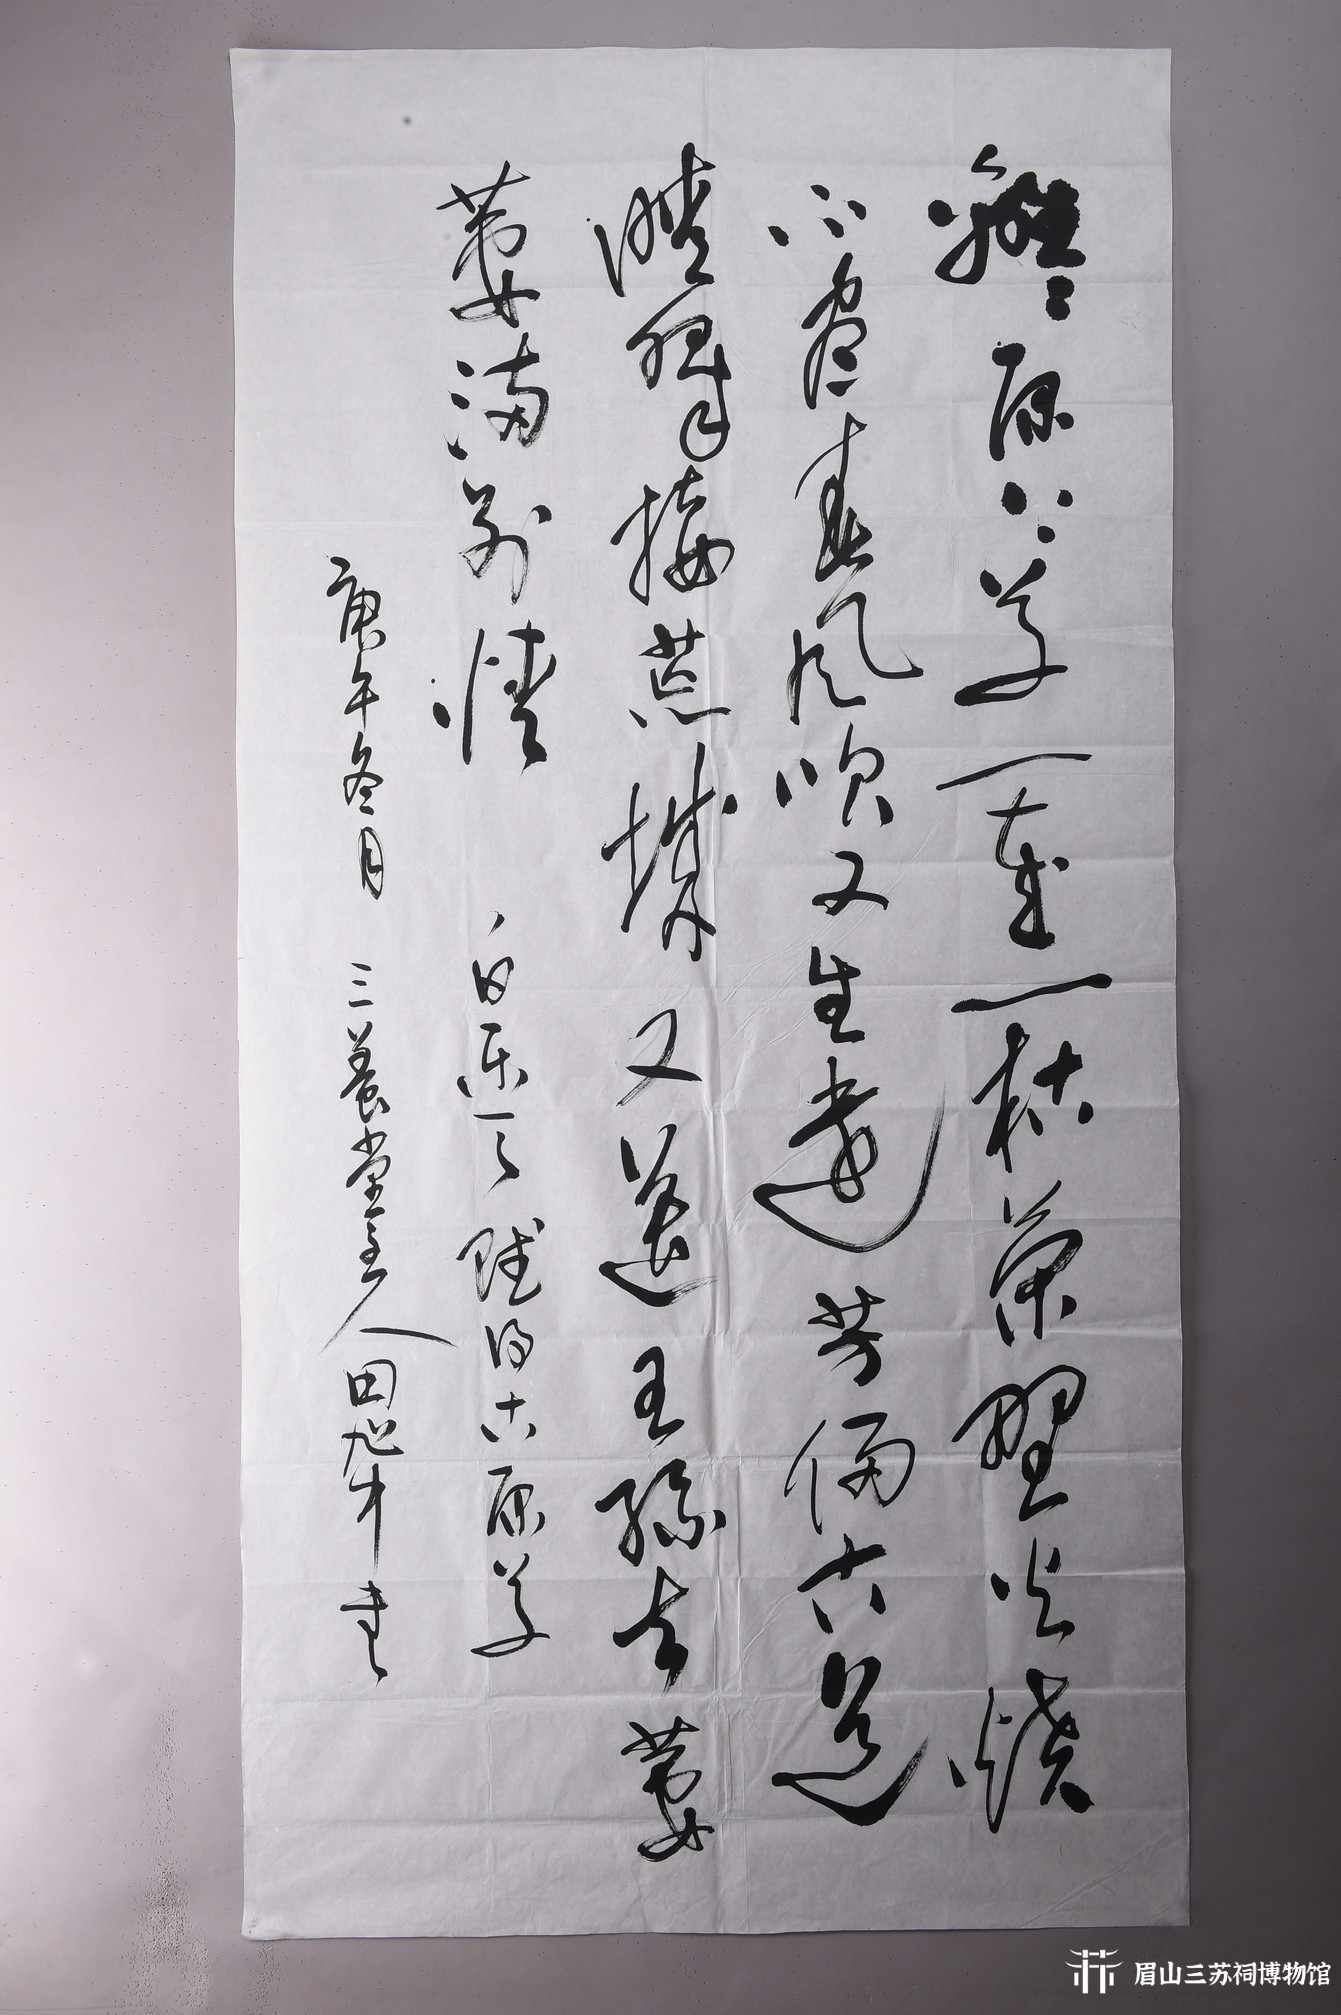 離離原上草一歲一枯榮野火燒
不盡春風吹又生遠芳侵古道
晴翠接荒城又送王孫去萋
萋滿別情 白樂天賦得古原草
庚午冬月 三養堂主人田旭中書
眉山三苏祠博物馆